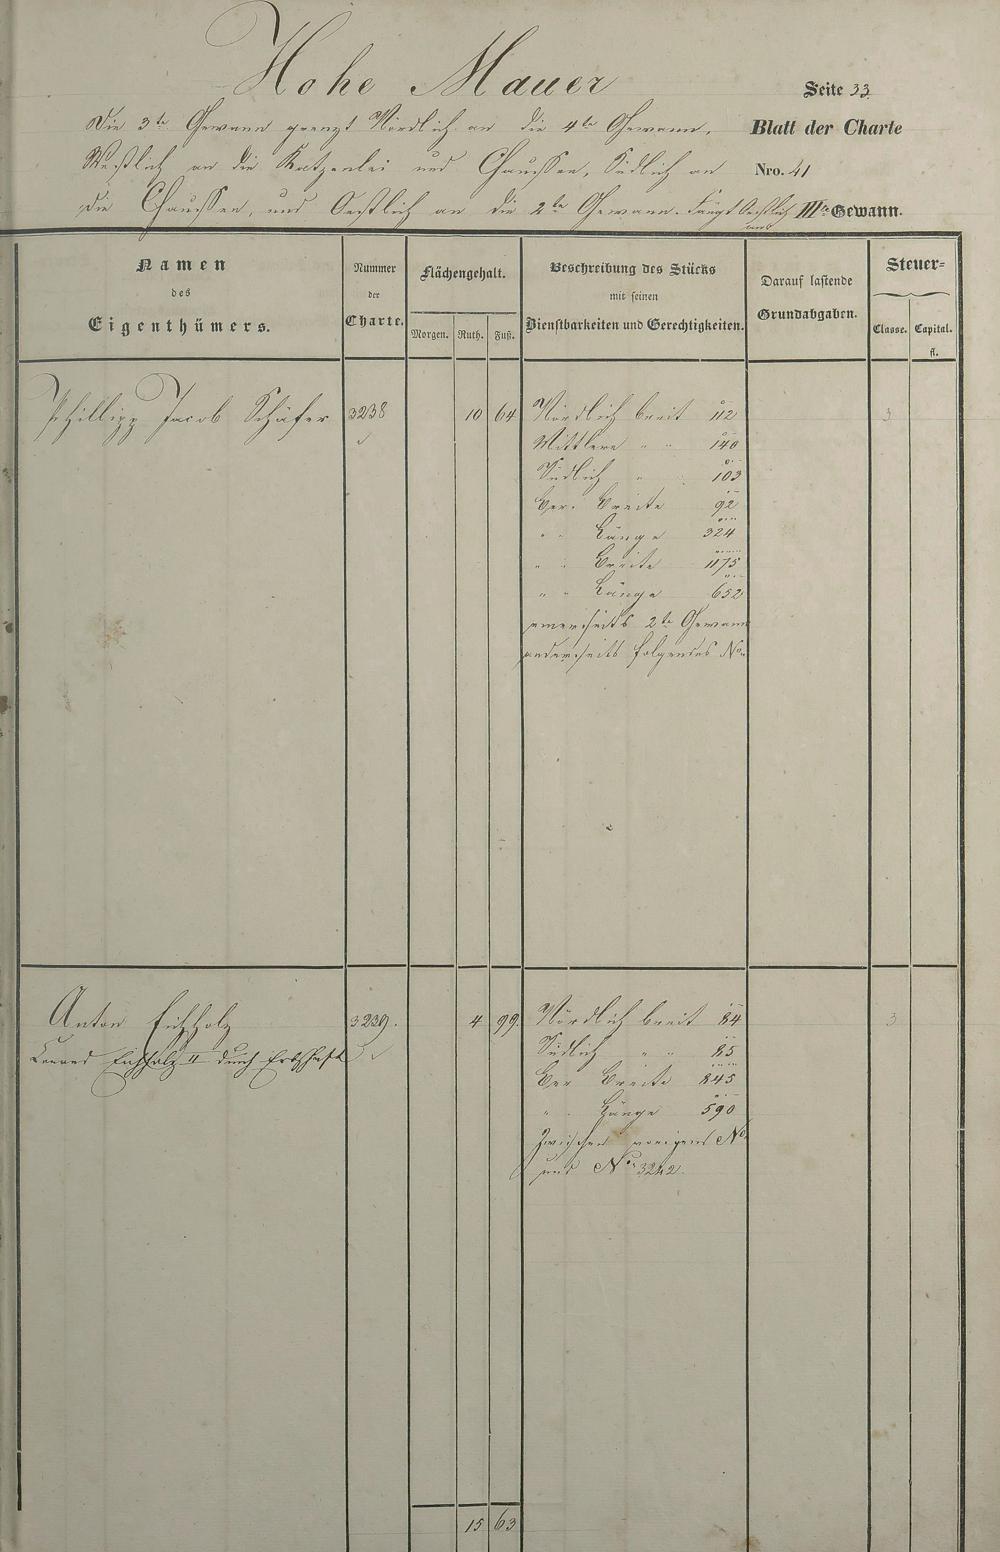 Hohe Mauer
Seite 33
Die 3te Gewann grenzt Nördlich an die 4te Gewann,
Blatt der Charte
Westlich an die Katzenlei und Chaussee, Südlich an
Nro. 41
die Chaussee, und Oestlich an die 2te Gewann. Fängt Oestlich an
IIIte Gewann.
Namen
des
Eigenthümers.
Nummer
der
Charte.
Flächengehalt.
Morgen. Ruth. Fuß.
Beschreibung des Stücks
mit seinen
Dienstbarkeiten und Gerechtigkeiten.
Darauf lastende
Grundabgaben.
Steuer=
Classe. Capital.
fl.
Phillipp Jacob Schäfer 3238 10 64 Nördlich breit 112 3
Mittlere " " 140
Südlich " " 103
Ber. Breite 92
" " Länge 324
" " Breite 1175
" " Länge 652
einerseits 2te Gewann
anderseits folgendes No.
Anton Eichholz 3239. 4 99. Nördlich breit 84 3
Conrad Eichholz II durch Erbschaft
Südlich " " 85
Ber Breite 845
" " Länge 590
Zwischen voriger No.
und No. 3242.
15 63